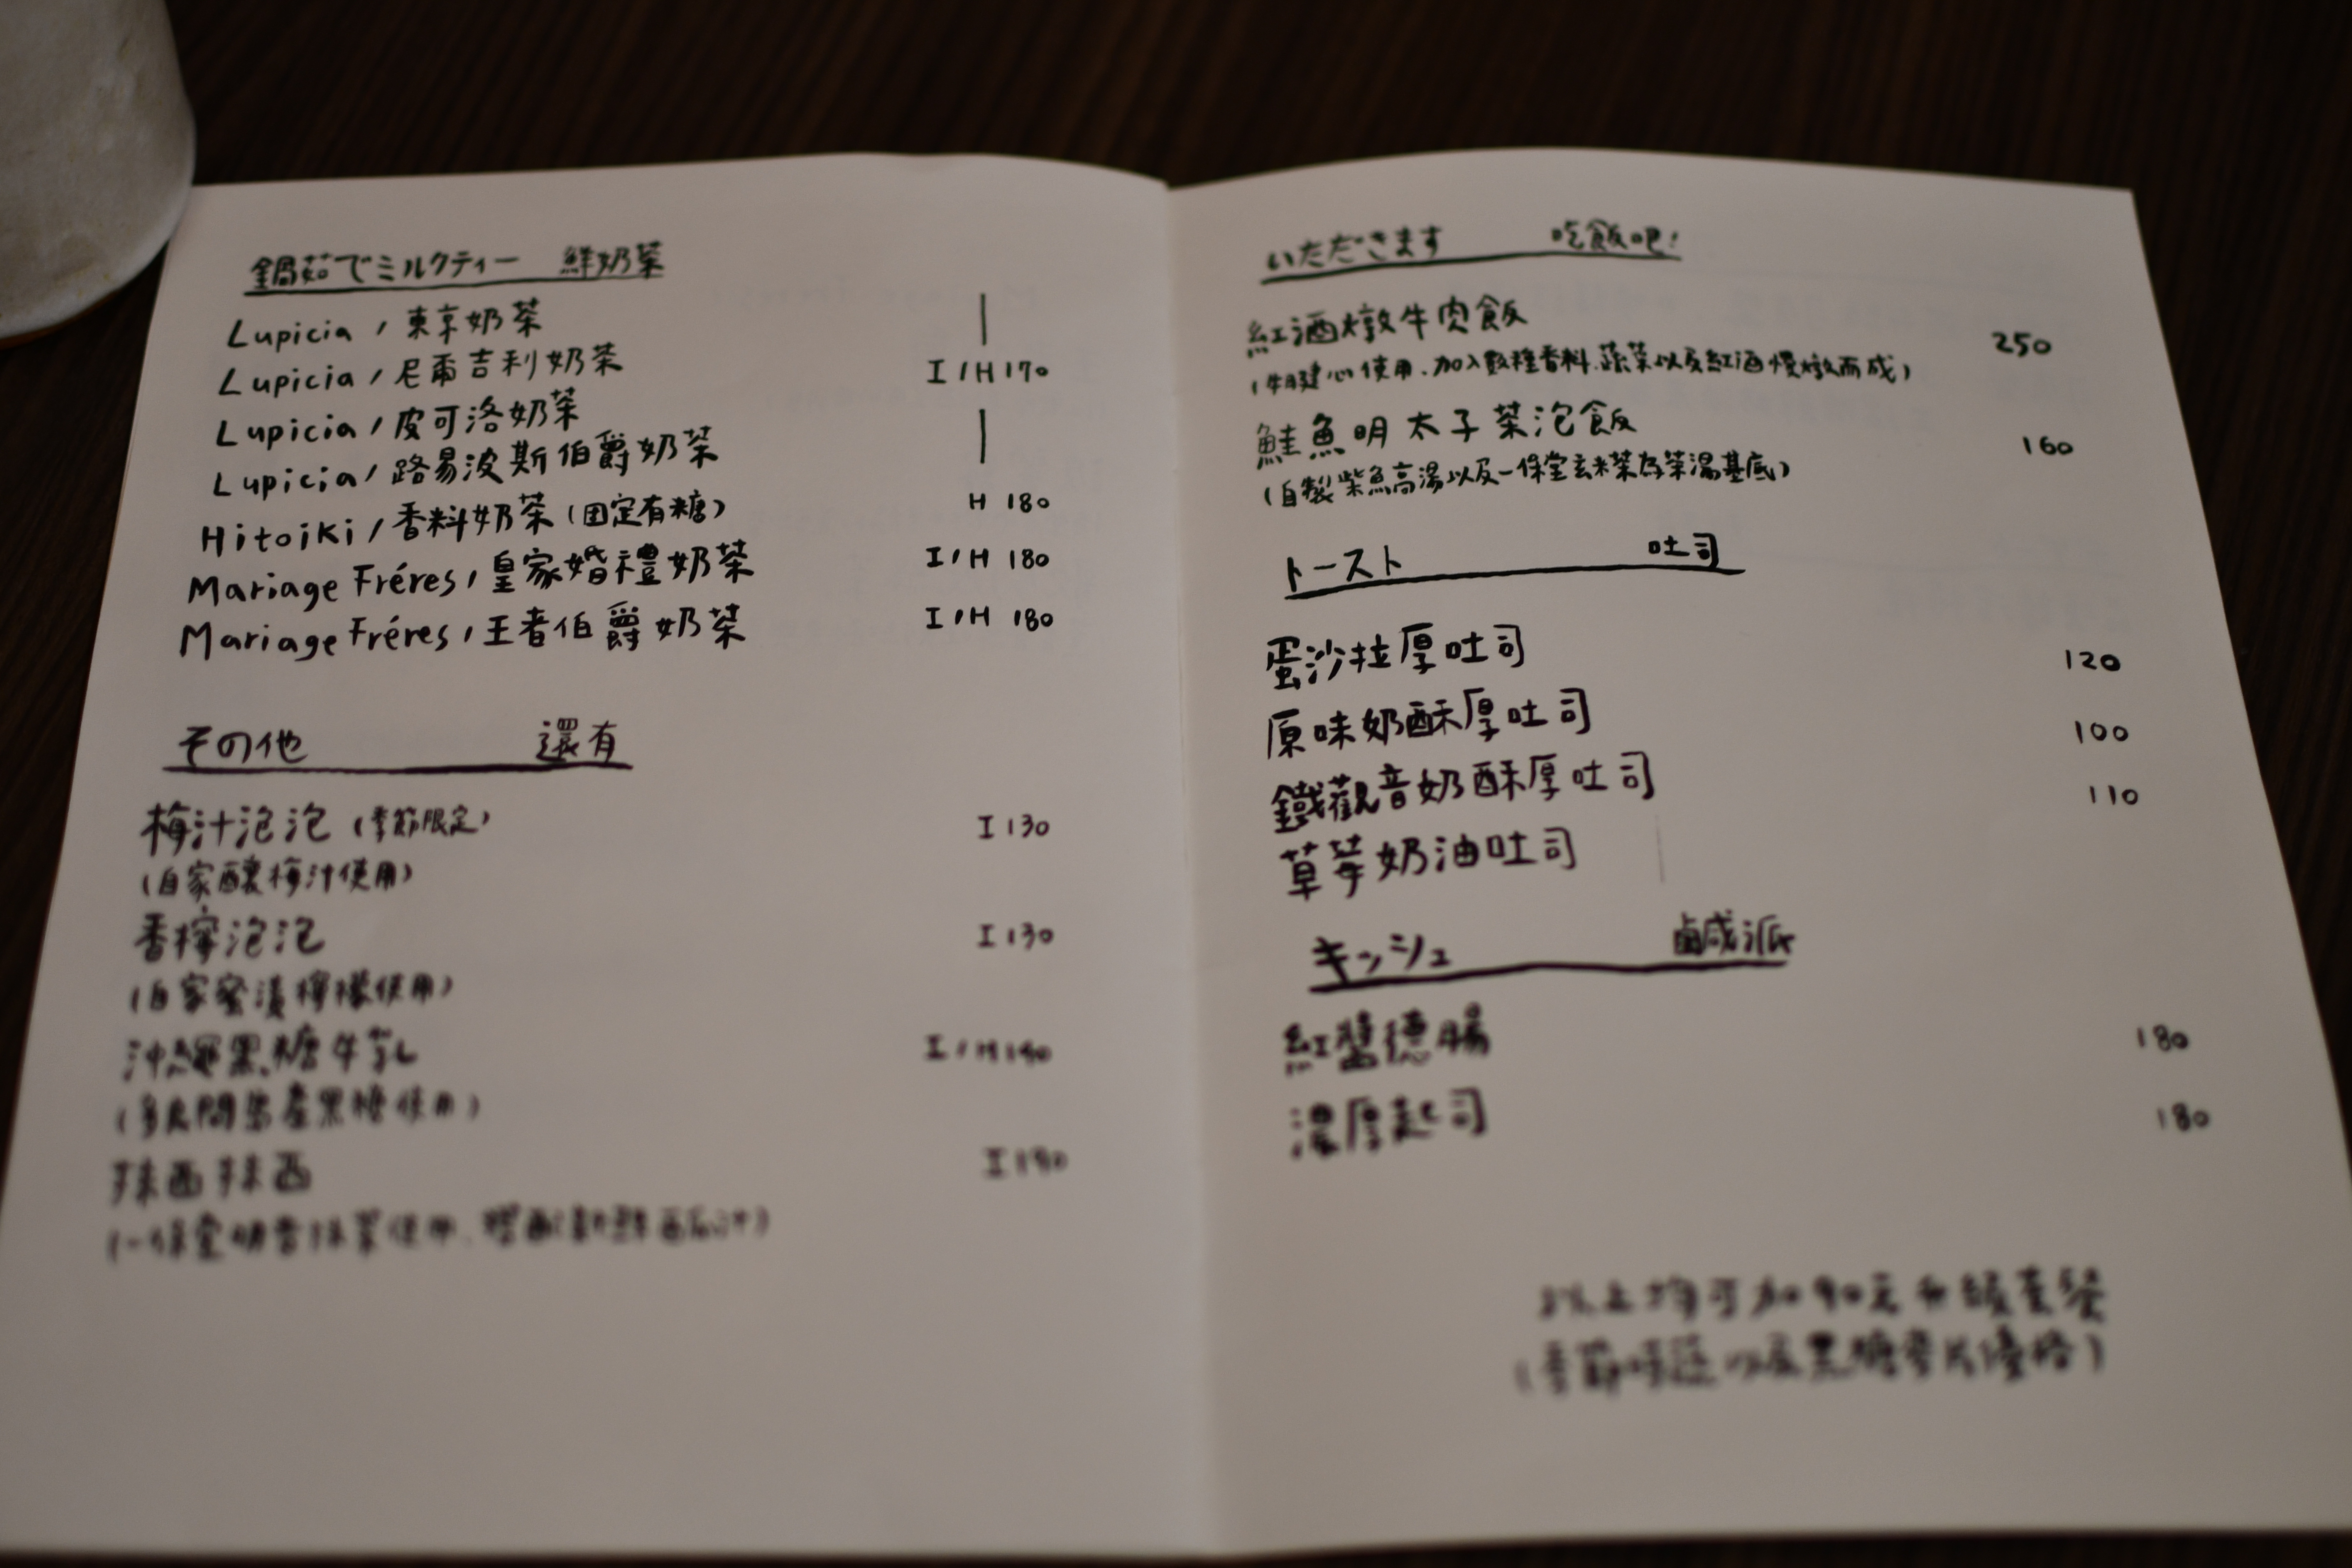 鍋茹でミルクティー 鮮奶茶
Lupicia / 東京奶茶
Lupicia / 尼爾吉利奶茶 I / H 170
Lupicia / 皮可洛奶茶
Lupicia / 路易波斯伯爵奶茶
Hitoiki / 香料奶茶 (固定有糖) H 180
Mariage Fréres / 皇家婚禮奶茶 I / H 180
Mariage Fréres / 王者伯爵奶茶 I / H 180
その他 還有
梅汁泡泡 (季節限定) I 130
(自家釀梅汁使用)
香檸泡泡 I 130
(自家蜜漬檸檬使用)
沖繩黑糖牛乳 I / H 140
(多良間島產黑糖使用)
抹西抹西 I 190
いただきます 吃飯吧!
紅酒燉牛肉飯 250
(牛腱心使用、加入數種香料、蔬菜以及紅酒慢燉而成)
鮭魚明太子茶泡飯 160
(自製柴魚高湯以及一保堂玄米茶為茶湯基底)
トースト 吐司
蛋沙拉厚吐司 120
原味奶酥厚吐司 100
鐵觀音奶酥厚吐司 110
草莓奶油吐司
キッシュ 鹹派
紅醬德腸 180
濃厚起司 180
以上均可加90元升級套餐